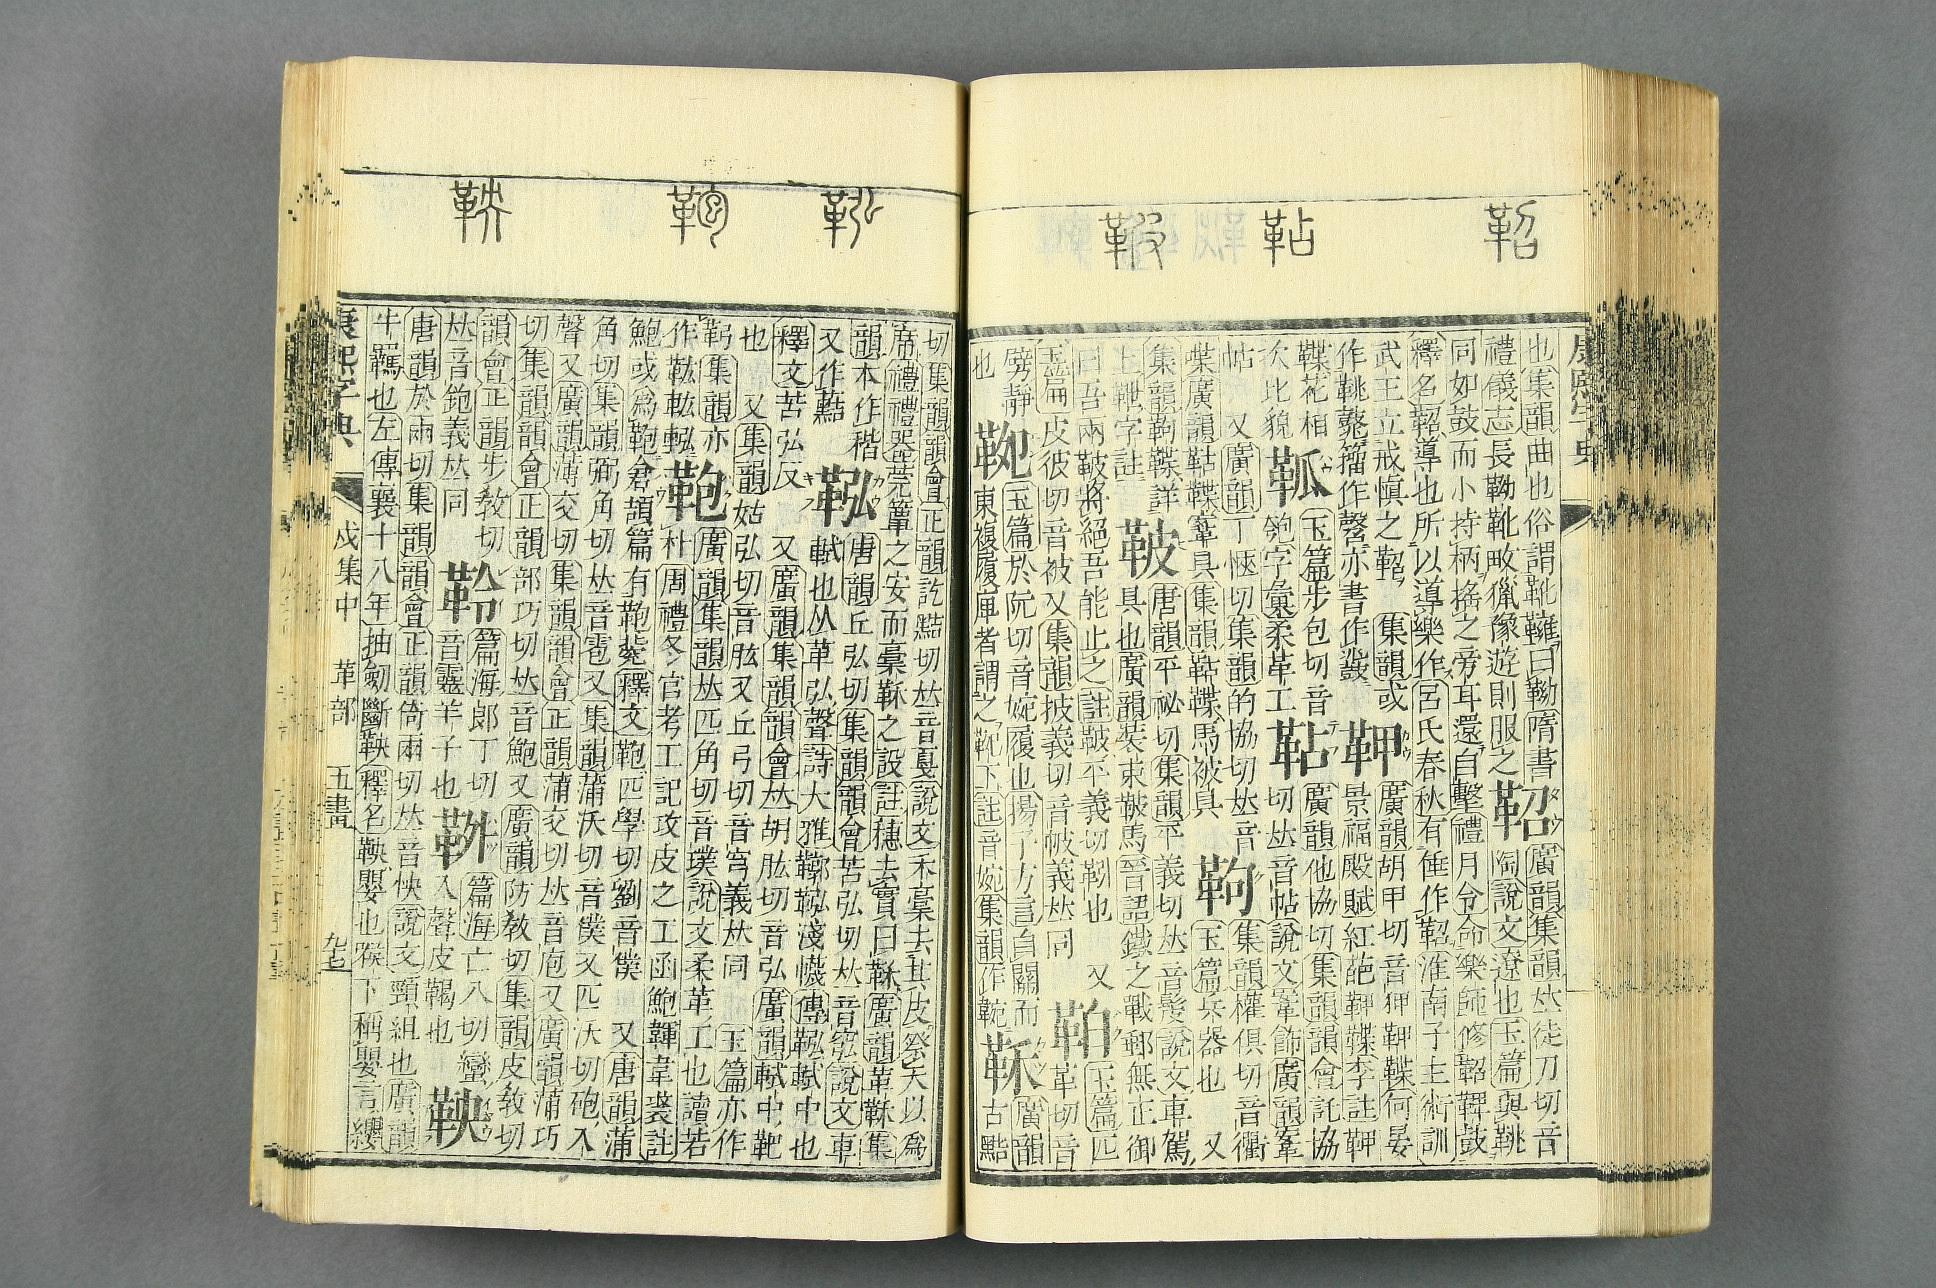 鞀
鞊
鞁
也集韻曲也俗謂靴𩌘曰靿隋書
禮儀志長靿靴畋獵豫遊則服之
鞀
廣韻集韻𠀤徒刀切音
陶說文遼也玉篇與鞉
同如鼓而小持柄搖之旁耳還自擊禮月令命樂師修鞀鞞鼓
釋名鞀導也所以導樂作呂氏春秋有倕作鞀淮南子主術訓
武王立戒愼之鞀 集韻或
作鞉鼗籀作磬亦書作鼗
廣韻胡甲切音狎 鞢何晏
景福殿賦紅葩 鞢李註
鞢花相
次比貌
玉篇步包切音
匏字彙柔革工
鞊
廣韻他協切集韻韻會託協
切𠀤音帖說文鞌飾廣韻鞌
帖 又廣韻丁愜切集韻的協切𠀤音
喋廣韻鞊鞢鞌具集韻鞊鞢馬被具
集韻權俱切音衢
玉篇兵器也 又
集韻 鞢詳
上靻字註
鞁
唐韻平祕切集韻平義切𠀤音髲說文車駕
具也廣韻裝束鞁馬晉語鐵之戰郵無正御
曰吾兩鞁將絕吾能止之註鞁平義切靷也 又
玉篇皮彼切音被又集韻披義切音帔義𠀤同
玉篇匹
革切音
劈靜
也
玉篇於阮切音婉履也揚子方言自關而
東複履庳者謂之 下註音婉集韻作
鞂
廣韻
古黠
康熙字典
鞃
鞄
鞅
切集韻韻會正韻訖黠切𠀤音戛說文禾稾去其皮祭天以爲
席禮禮器莞簟之安而稾鞂之設註穗去實曰鞂廣韻革鞂集
韻本作稭
又作藍
鞃
唐韻丘弘切集韻韻會苦弘切𠀤音 說文車
軾也从革弘聲詩大雅鞹鞃淺幭傳鞃軾中也
釋文苦弘反 又廣韻集韻韻會𠀤胡肱切音弘廣韻軾中靶
也 又集韻姑弘切音肱又丘弓切音穹義𠀤同 玉篇亦作
集韻亦
作
鞄
廣韻集韻𠀤匹角切音璞說文柔革工也讀若
朴 周禮冬官考工記攻皮之工函鮑韗韋裘註
鮑或爲鞄倉頡篇有鞄䩕釋文鞄匹學切劉音僕 又唐韻蒲
角切集韻弼角切𠀤音雹又集韻蒲沃切音僕又匹沃切砲入
聲又廣韻薄交切集韻韻會正韻蒲交切𠀤音庖又廣韻蒲巧
切集韻韻會正韻部巧切𠀤音鮑又廣韻防敎切集韻皮敎切
韻會正韻步敎切
𠀤音鉋義𠀤同
篇海郞丁切
音靈羊子也
篇海亡八切蠻
入聲皮鞨也
鞅
唐韻於兩切集韻韻會正韻倚兩切𠀤音怏說文頸組也廣韻
牛羈也左傳襄十八年抽劒斷鞅釋名鞅嬰也喉下稱嬰言纓
康熙字典
戌集中
革部
五畫